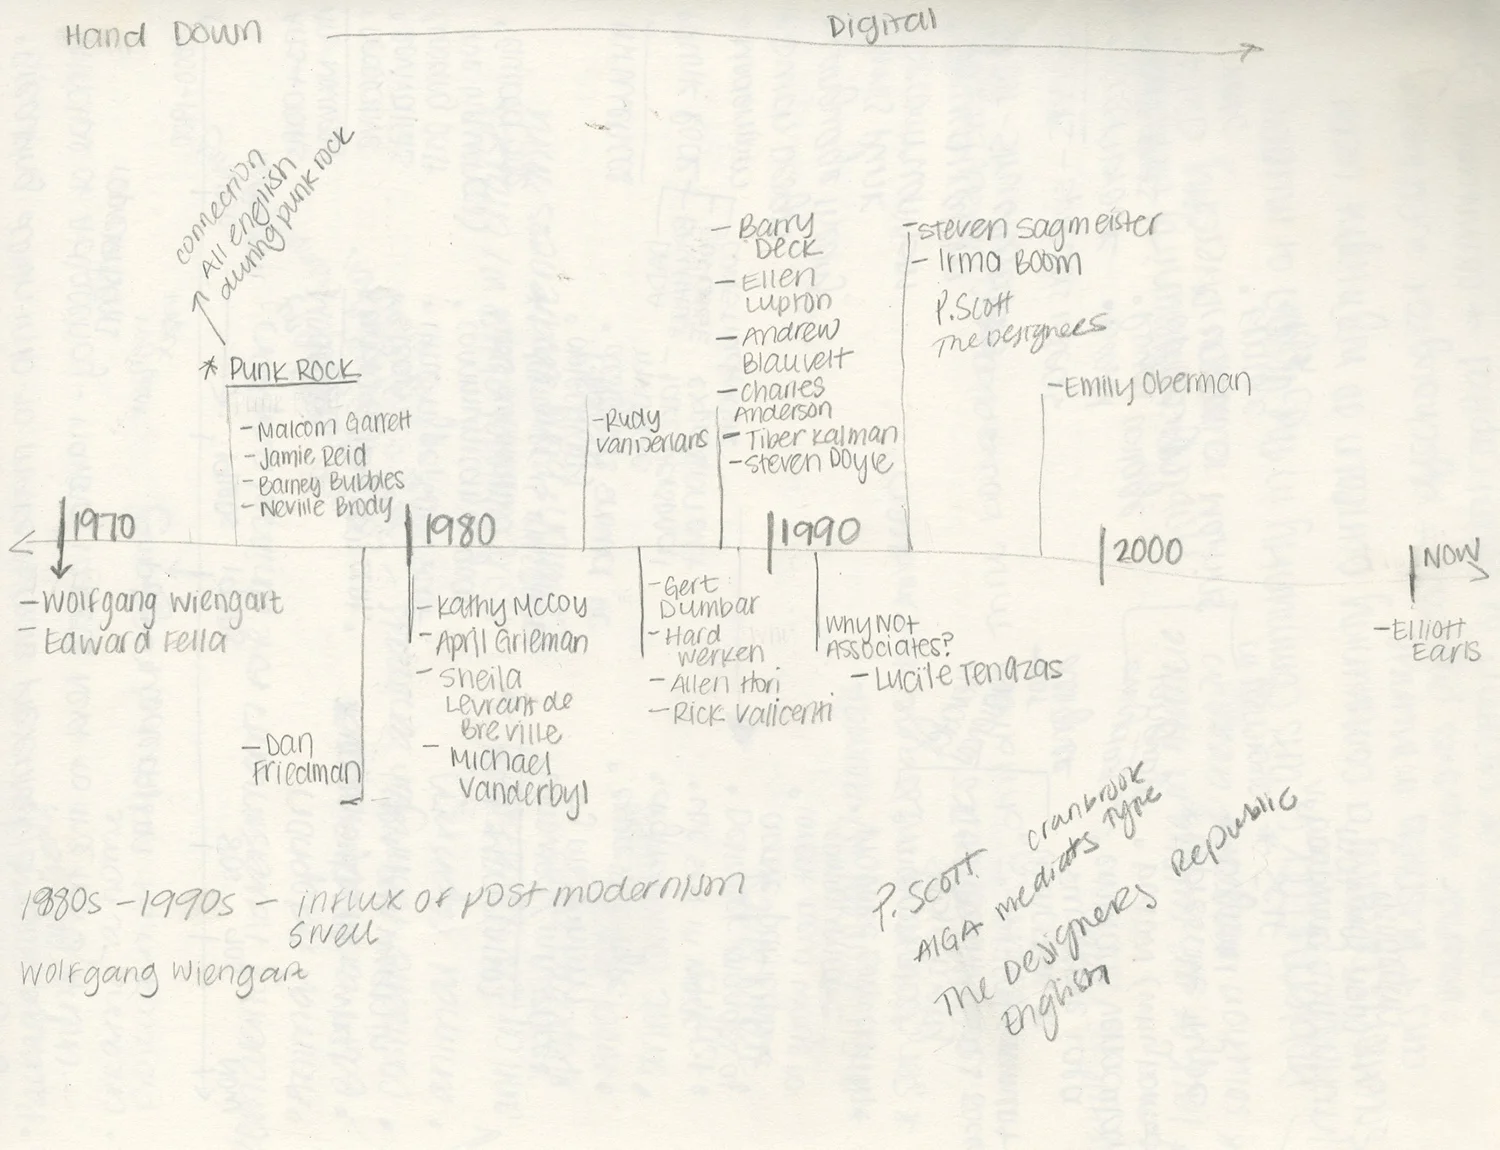 Hand Down
Digital
connection
All english
during punk rock
* Punk Rock
- Malcom Garrett
- Jamie Reid
- Barney Bubbles
- Neville Brody
- Rudy
Vanderlans
- Barry
Deck
- Ellen
Lupton
- Andrew
Blauvelt
- Charles
Anderson
- Tiber Kalman
- Steven Doyle
- Steven Sagmeister
- Irma Boom
P. Scott
The Designees
- Emily Oberman
1970
1980
1990
2000
NOW
- Wolfgang Wiengart
- Edward Fella
- Dan
Friedman
- Kathy McCoy
- April Grieman
- Sheila
Levrant de
Breville
- Michael
Vanderbyl
- Gert
Dumbar
- Hard
Werken
- Allen Hori
- Rick Valicenti
Why Not
Associates?
- Lucile Tenazas
- Elliott
Earls
1980s - 1990s - influx of post modernism
swell
Wolfgang Wiengart
P. Scott cranbrook
AIGA mediates Type
The Designers Republic
English